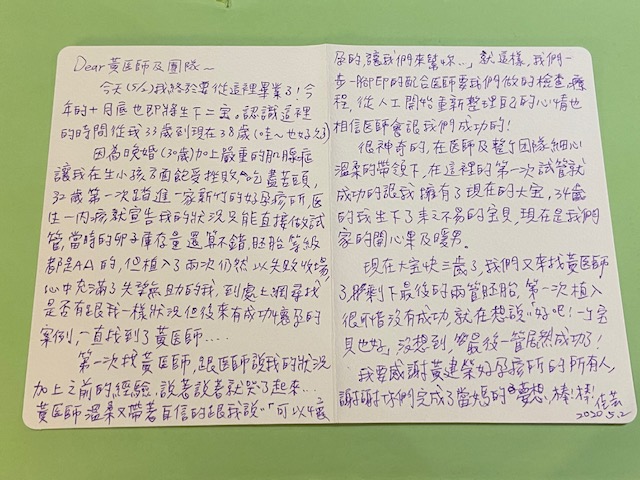 Dear 黃医師及團隊~
今天(5/2)我終於要從這裡畢業了!今
年的十月底也即將生下二宝。認識這裡
的時間從我33歲到現在38歲(哇~也好久)
因為晚婚(30歲)加上嚴重的肌腺症
讓我在生小孩了面飽受挫敗、吃盡苦頭,
32歲第一次踏進一家新竹的好孕診所,医
生一內診就宣告我的狀況只能直接做試
管,當時的卵子庫存量還算不錯,胚胎等級
都是AA的,但植入了兩次仍然以失敗收場,
心中充滿了失望無助的我,到處上網尋找
是否有跟我一樣狀況但後來有成功懷孕的
案例,一直找到了黃医師....
第一次找黃医師,跟医師說我的狀況
加上之前的經驗,說著說著就哭了起來...
黃医師溫柔又帶著自信的跟我說「可以懷
孕的,讓我們來幫妳...」就這樣,我們一
步一腳印的配合医師要我們做的檢查、療
程,從人工開始重新整理自己的心情也
相信医師會跟我們成功的!
很神奇的,在医師及整个团隊細心
溫柔的帶領下,在這裡的第一次試管就
成功的讓我擁有了現在的大宝,34歲
的我生下了來之不易的宝貝,現在是我們
家的開心果及暖男。
現在大宝快三歲了,我們又來找黃医師
了,那剩下最後的兩管胚胎,第一次植入
很可惜沒有成功,就在想說"好吧!一个宝
貝也好",沒想到"最後一管居然成功了!
我要感謝黃建榮好孕診所的所有人,
謝謝你們完成了當媽的夢想,棒!棒!佳芸
2020.5.2